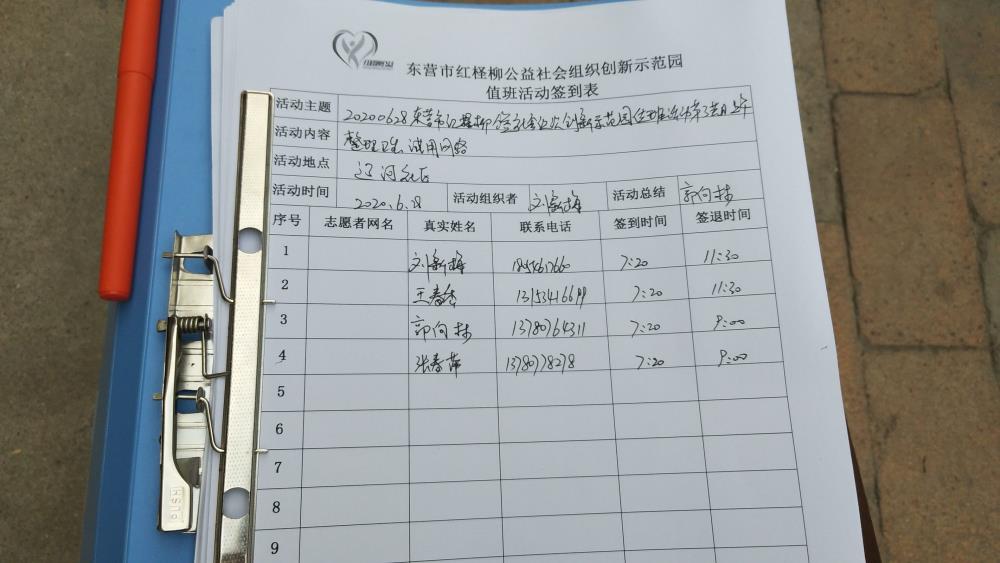 东营市红柽柳公益社会组织创新示范园
值班活动签到表
活动主题 20200628东营市红柽柳公益社会组织创新示范园值班活动第
活动内容 整理 试用网络
活动地点 辽河
活动时间 2020.6.28 活动组织者 刘新梅 活动总结 郭向梅
序号 志愿者网名 真实姓名 联系电话 签到时间 签退时间
1 刘新梅 7:20 11:30
2 王春 7:20 11:30
3 郭向 13780764311 7:20 9:00
4 张春萍 13780778278 7:20 9:00
5
6
7
8
9
PUSH